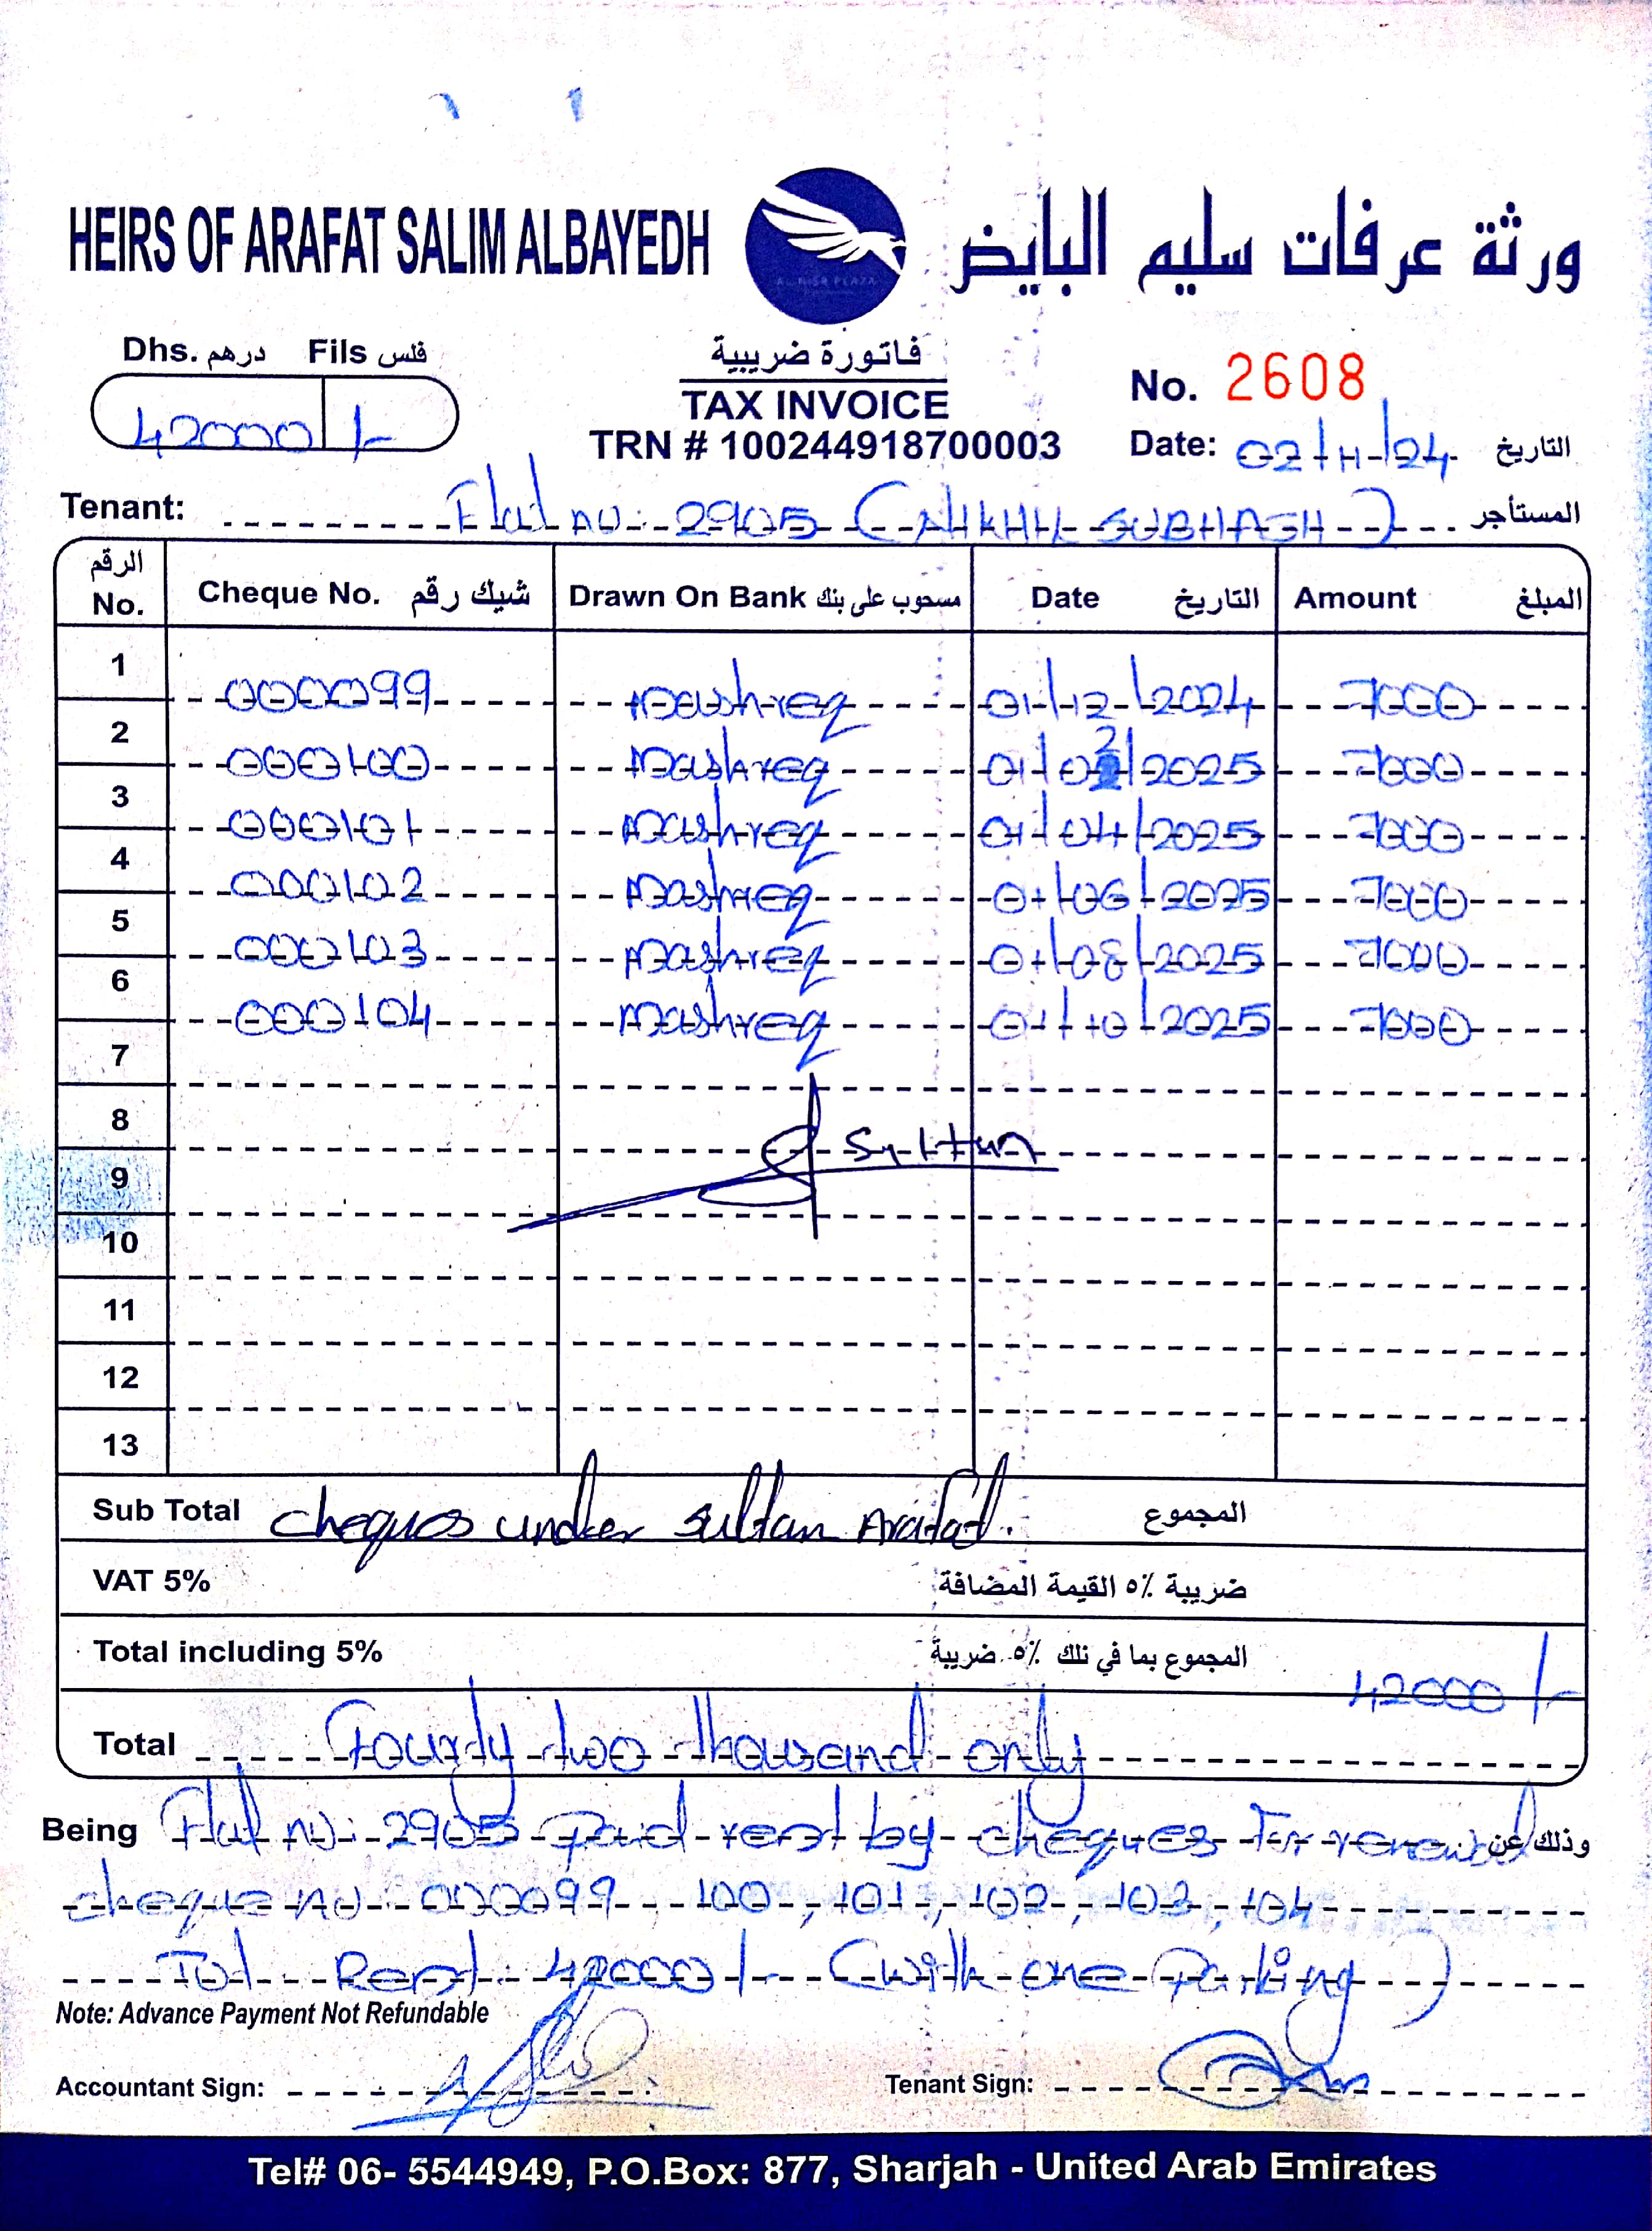 HEIRS OF ARAFAT SALIM ALBAYEDH ورثة عرفات سليم البايض
AL NISR PLAZA
Dhs. درهم Fils فلس
42000 /-
فاتورة ضريبية
TAX INVOICE
TRN # 100244918700003
No. 2608
Date: 02/11/24 التاريخ
Tenant: Flat no: 2905 (NIKHIL SUBHASH) المستأجر
الرقم No. Cheque No. شيك رقم Drawn On Bank مسحوب على بنك Date التاريخ Amount المبلغ
1 000099 Mashreq 01/12/2024 7000
2 000100 Mashreq 01/02/2025 7000
3 000101 Mashreq 01/04/2025 7000
4 000102 Mashreq 01/06/2025 7000
5 000103 Mashreq 01/08/2025 7000
6 000104 Mashreq 01/10/2025 7000
7
8 Sultan
9
10
11
12
13
Sub Total cheques under sultan Arafat. المجموع
VAT 5% ضريبة ٥% القيمة المضافة
Total including 5% المجموع بما في ذلك ٥% ضريبة 42000/-
Total Fourty two thousand only
Being Flat no: 2905 paid rent by cheques for renewal وذلك عن
cheque no: 000099, 100, 101, 102, 103, 104
Tot Rent: 42000/- (with one Parking)
Note: Advance Payment Not Refundable
Accountant Sign: Tenant Sign:
Tel# 06- 5544949, P.O.Box: 877, Sharjah - United Arab Emirates